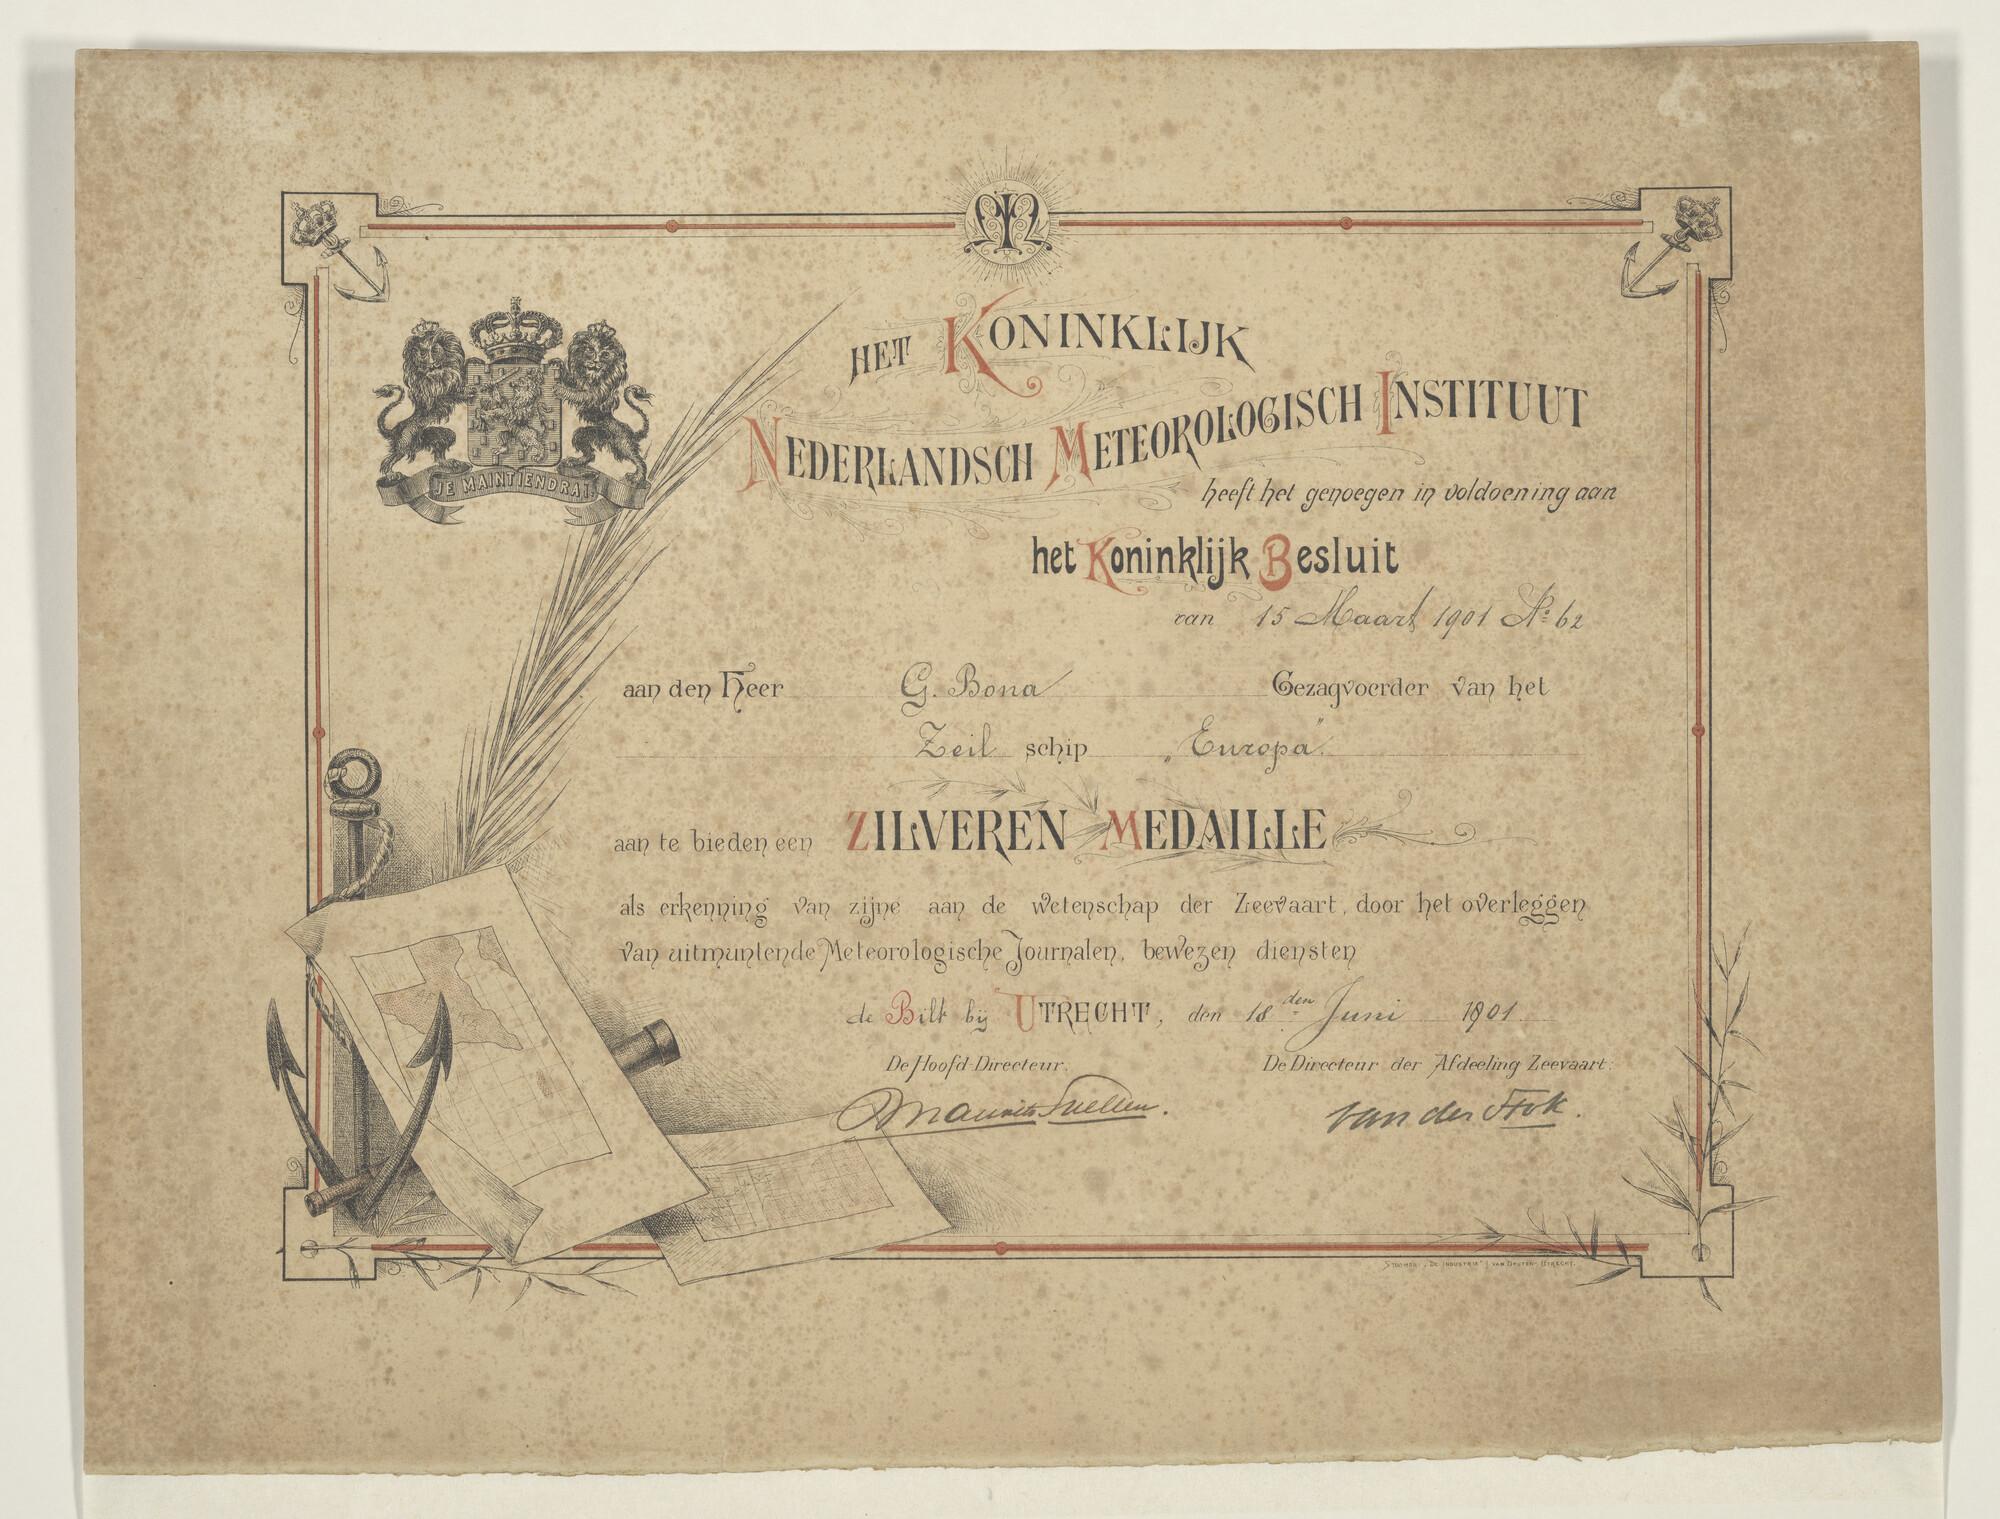 JE MAINTIENDRAI
HET KONINKLIJK
NEDERLANDSCH METEOROLOGISCH INSTITUUT
heeft het genoegen in voldoening aan
het Koninklijk Besluit
van 15 Maart 1901 No 62
aan den Heer G. Bona Gezagvoerder van het
Zeil schip „Europa"
aan te bieden een ZILVEREN MEDAILLE
als erkenning van zijne aan de wetenschap der Zeevaart, door het overleggen
van uitmuntende Meteorologische Journalen, bewezen diensten
de Bilt bij UTRECHT, den 18den Juni 1901
De Hoofd-Directeur. De Directeur der Afdeeling Zeevaart:
Maurits Snellen. van der Stok.
"DE INDUSTRIE" J. VAN DRUTEN - UTRECHT.